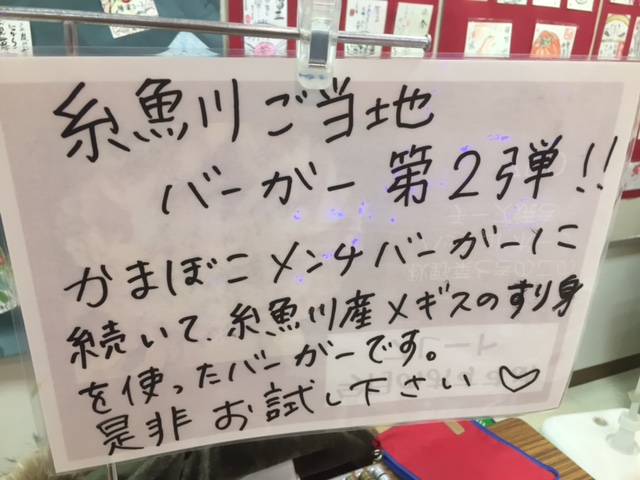 糸魚川ご当地
バーガー第2弾!!
かまぼこメンチバーガーに
続いて、糸魚川産メギスのすり身
を使ったバーガーです。
是非お試し下さい♡